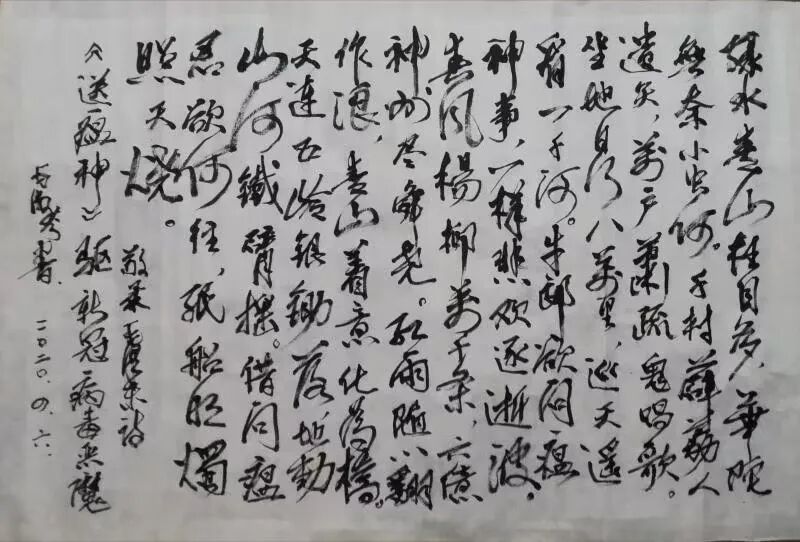 绿水青山枉自多，華陀
無奈小虫何。千村薜荔人
遗矢，萬户蕭疏鬼唱歌。
坐地日行八萬里，巡天遥
看一千河。牛郎欲问瘟
神事，一样悲欢逐逝波。
春风楊柳萬千条，六億
神州尽舜尧。红雨随心翻
作浪，青山着意化為橋。
天连五岭银锄落地动
山河鐵臂摇。借问瘟
君欲何往，纸船明燭
照天烧。
敬录毛泽东诗
《送瘟神》驱新冠病毒恶魔
書 二〇二〇.四.六.